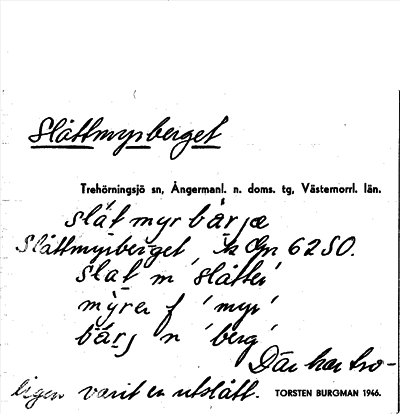 Slåttmyrberget
Trehörningsjö sn, Ångermanl. n. doms. tg, Västernorrl. län.
slåt myr bärjæ
Slåttmyrberget Gpn 62 SO.
slåt m 'slåtter'
myren f 'myr'
bärj n 'berg'
Där har tro-
ligen varit en utslått. TORSTEN BURGMAN 1946.